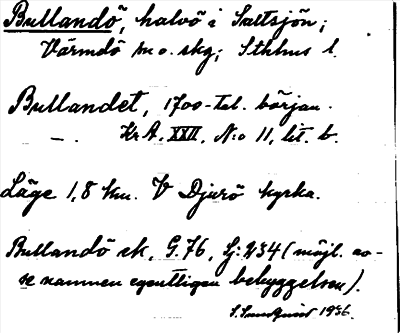 Bullandö, halvö i Saltsjön;
Värmdö m o. skg; Sthlms l.
Bullandet, 1700-tal. början.
—. Kr A. XXII, N:o 11, lit. b.
Läge 1,8 km. V Djurö kyrka.
Bullandö ek, G. 76, Lj: 234 (möjl. av-
se namnen egentligen bebyggelsen).
1936.